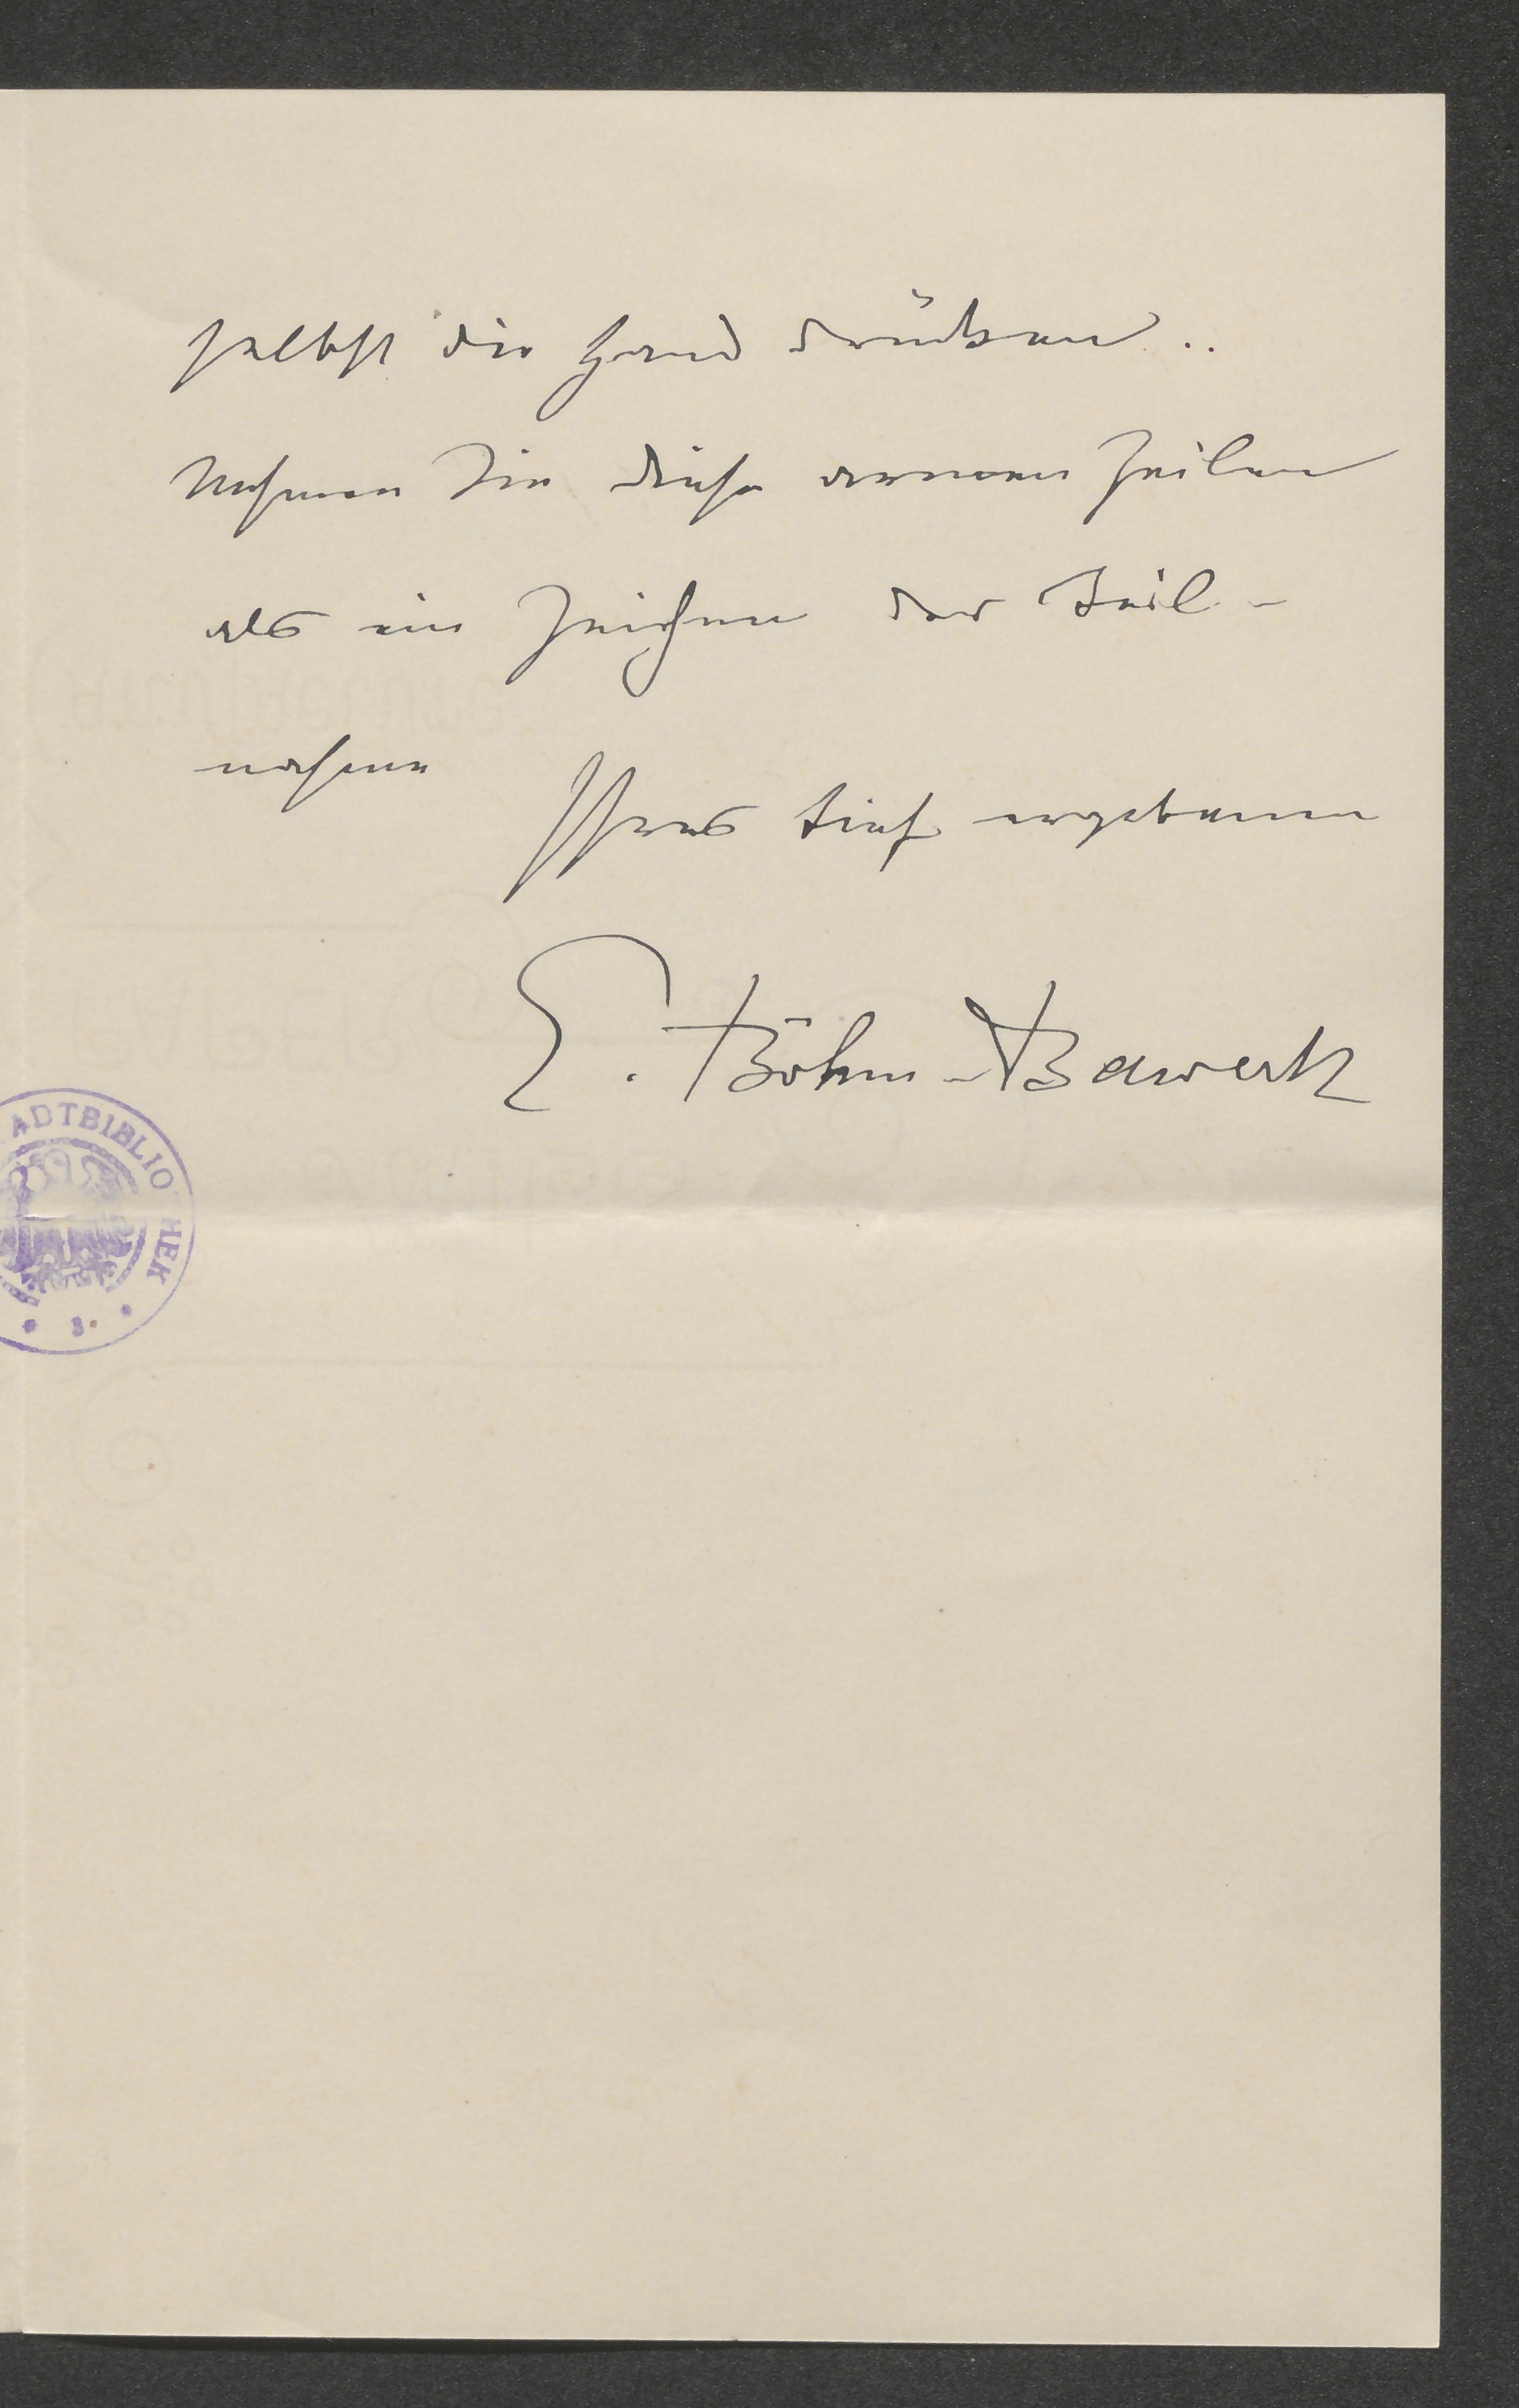 selbst die Hand drücken..
Nehmen Sie diese armen Zeilen
als ein Zeichen der Teil-
nahme
Ihres tief ergebenen
E. Böhm-Bawerk
ADTBIBLIOTHEK